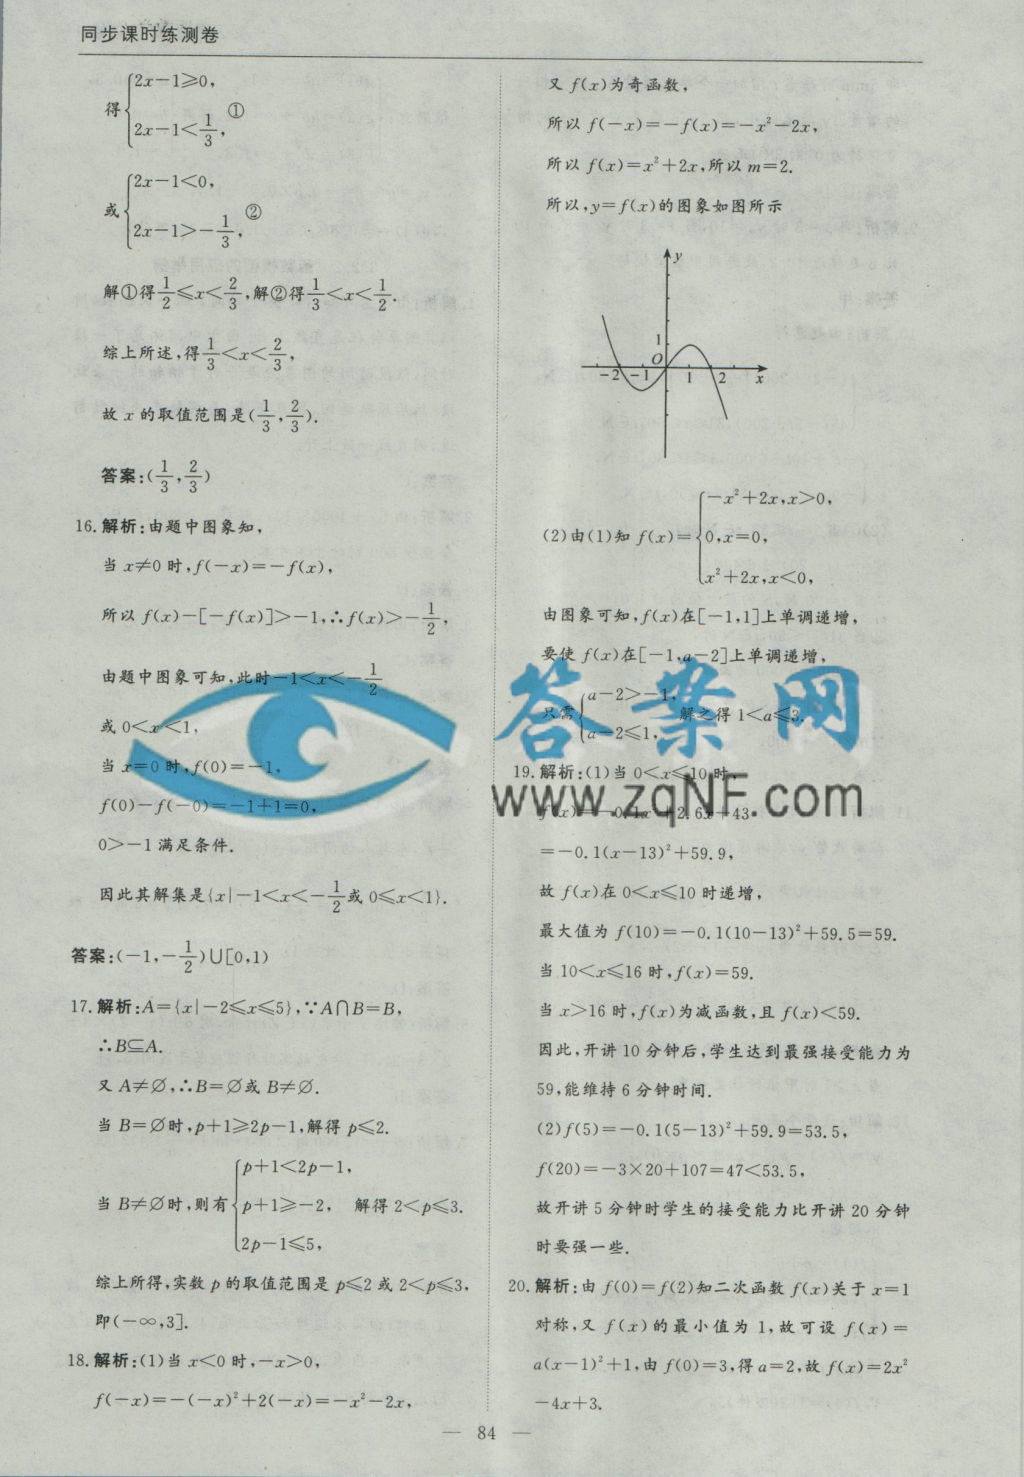 同步课时练测卷
得{2x-1≥0, 2x-1<1/3, ①
或{2x-1<0, 2x-1>-1/3, ②
解①得1/2≤x<2/3,解②得1/3<x<1/2.
综上所述,得1/3<x<2/3,
故 x 的取值范围是(1/3,2/3).
答案:(1/3,2/3)
16.解析:由题中图象知,
当 x≠0 时,f(-x)=-f(x),
所以 f(x)-[-f(x)]>-1,∴f(x)>-1/2,
由题中图象可知,此时-1<x<-1/2
或 0<x<1,
当 x=0 时,f(0)=-1,
f(0)-f(-0)=-1+1=0,
0>-1 满足条件.
因此其解集是{x|-1<x<-1/2或 0≤x<1}.
答案:(-1,-1/2)∪[0,1)
17.解析:A={x|-2≤x≤5},∵A∩B=B,
∴B⊆A.
又 A≠∅,∴B=∅或 B≠∅.
当 B=∅时,p+1≥2p-1,解得 p≤2.
当 B≠∅时,则有{p+1<2p-1, p+1≥-2, 2p-1≤5, 解得 2<p≤3.
综上所得,实数 p 的取值范围是 p≤2 或 2<p≤3,
即(-∞,3].
18.解析:(1)当 x<0 时,-x>0,
f(-x)=-(-x)²+2(-x)=-x²-2x,
又 f(x)为奇函数,
所以 f(-x)=-f(x)=-x²-2x,
所以 f(x)=x²+2x,所以 m=2.
所以,y=f(x)的图象如图所示
y
1
O
-2 -1 1 2 x
(2)由(1)知 f(x)={-x²+2x,x>0, 0,x=0, x²+2x,x<0,
由图象可知,f(x)在[-1,1]上单调递增,
要使 f(x)在[-1,a-2]上单调递增,
只需{a-2>-1, a-2≤1, 解之得 1<a≤3.
19.解析:(1)当 0<x≤10 时,
f(x)=-0.1x²+2.6x+43
=-0.1(x-13)²+59.9,
故 f(x)在 0<x≤10 时递增,
最大值为 f(10)=-0.1(10-13)²+59.5=59.
当 10<x≤16 时,f(x)=59.
当 x>16 时,f(x)为减函数,且 f(x)<59.
因此,开讲 10 分钟后,学生达到最强接受能力为
59,能维持 6 分钟时间.
(2)f(5)=-0.1(5-13)²+59.9=53.5,
f(20)=-3×20+107=47<53.5,
故开讲 5 分钟时学生的接受能力比开讲 20 分钟
时要强一些.
20.解析:由 f(0)=f(2)知二次函数 f(x)关于 x=1
对称,又 f(x)的最小值为 1,故可设 f(x)=
a(x-1)²+1,由 f(0)=3,得 a=2,故 f(x)=2x²
-4x+3.
答案网
www.zqNF.com
— 84 —